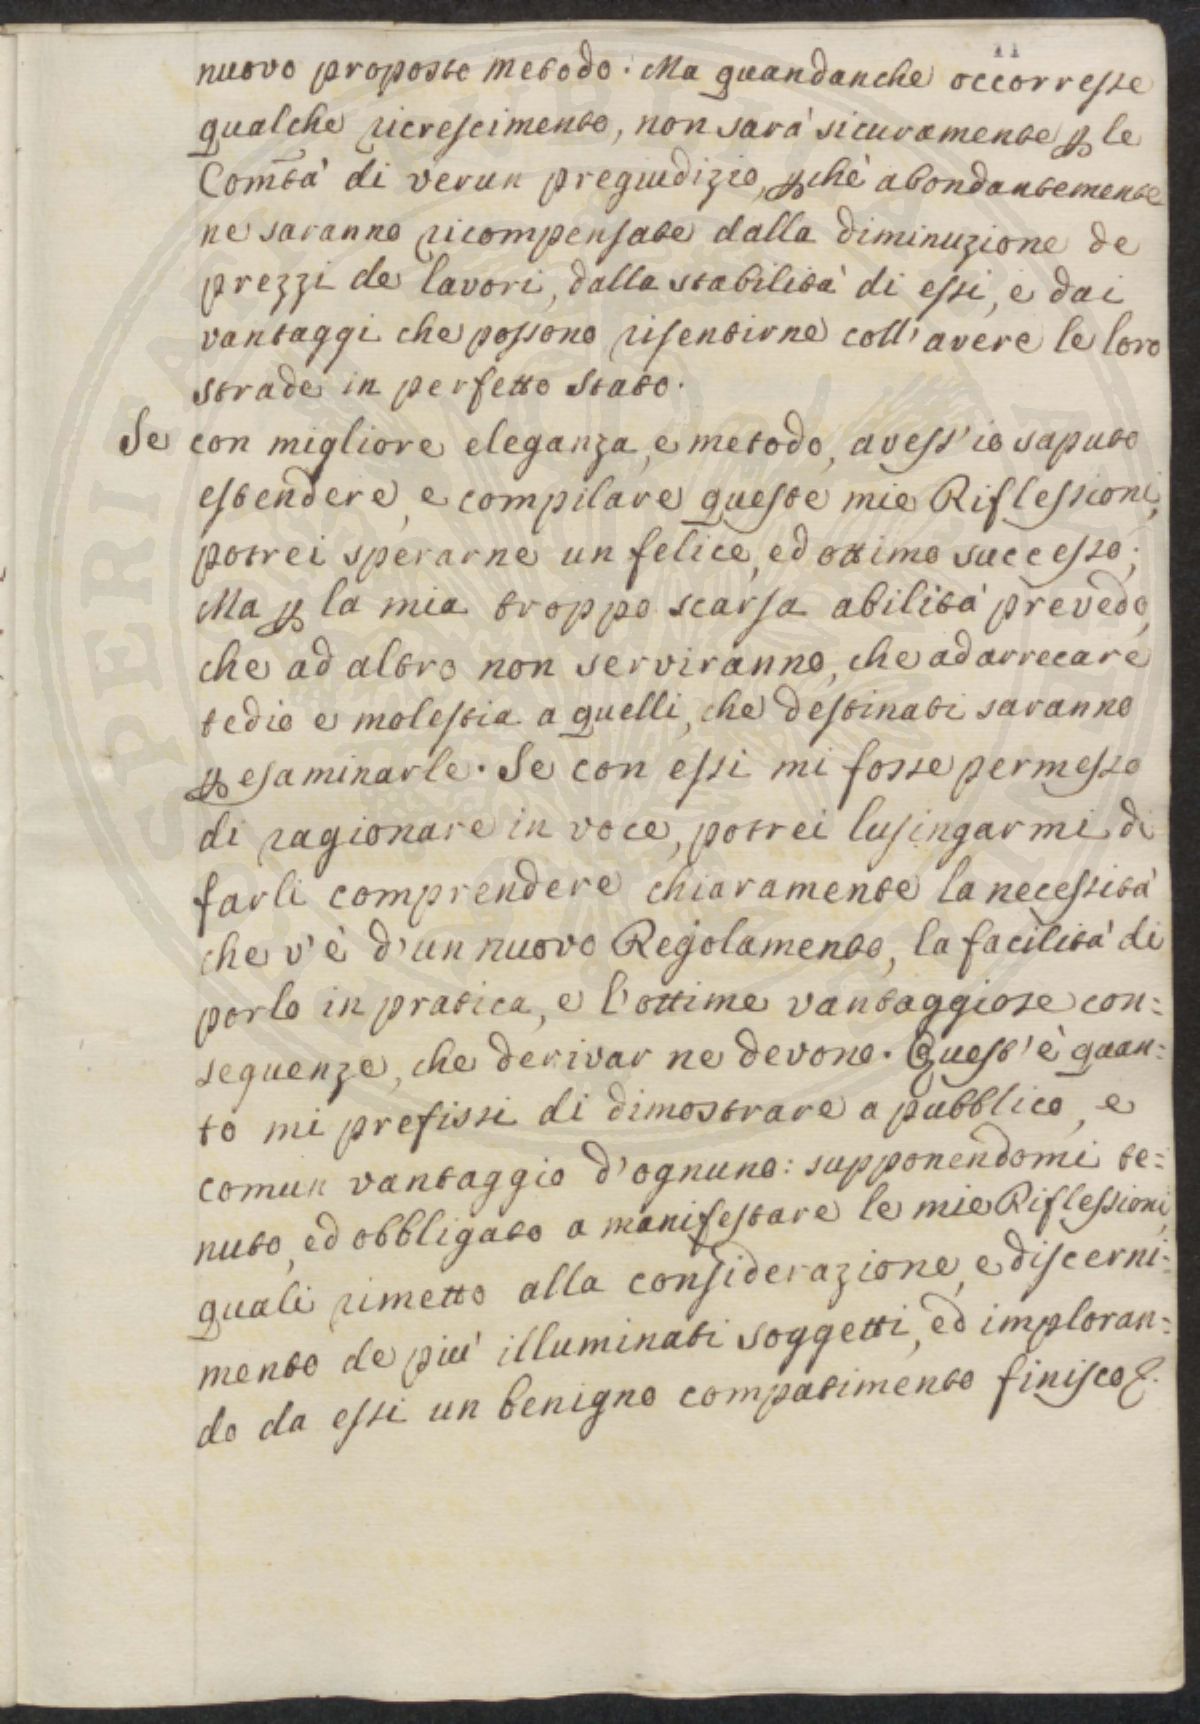 11
nuovo proposto metodo: Ma quand'anche occorresse
qualche ricrescimento, non sarà sicuramente ꝑ le
Com̃tà di verun pregiudizio, ꝑchè abondantemente
ne saranno ricompensate dalla diminuzione de
prezzi de lavori, dalla stabilità di essi, e dai
vantaggi che possono risentirne coll'avere le loro
strade in perfetto stato.
Se con migliore eleganza, e metodo, avess'io saputo
estendere, e compilare queste mie Riflessioni,
potrei sperarne un felice, ed ottimo successo;
Ma ꝑ la mia troppo scarsa abilità prevedo,
che ad altro non serviranno, che ad arrecare
tedio e molestia a quelli, che destinati saranno
ꝑ esaminarle. Se con essi mi fosse permesso
di ragionare in voce, potrei lusingarmi di
farli comprendere chiaramente la necessità
che v'è d'un nuovo Regolamento, la facilità di
porlo in pratica, e l'ottime vantaggiose con=
seguenze, che derivar ne devono. Quest'è quan=
to mi prefissi di dimostrare a pubblico, e
comun vantaggio d'ognuno: supponendomi te=
nuto, ed obbligato a manifestare le mie Riflessioni,
quali rimetto alla considerazione, e discerni=
mento de più illuminati soggetti, ed imploran=
do da essi un benigno compatimento finisco &.